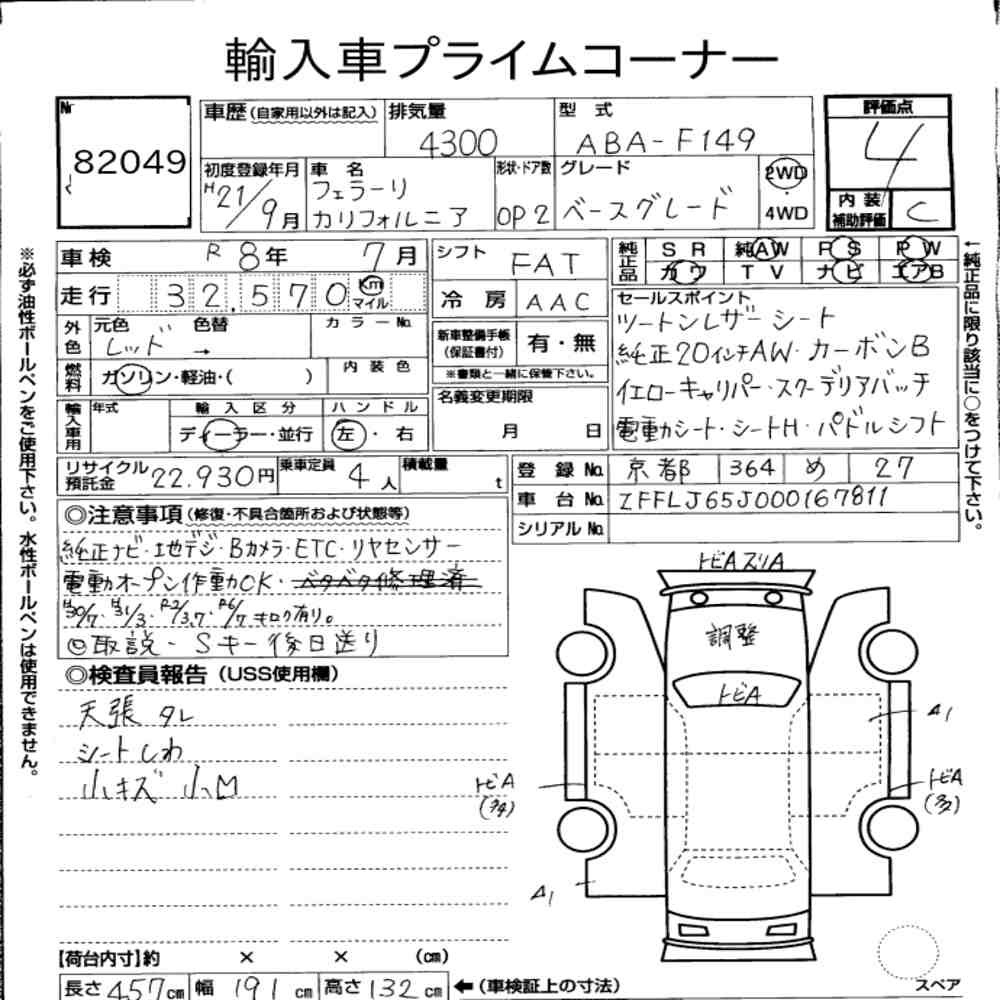 輸入車プライムコーナー
Nr 82049
車歴(自家用以外は記入) 排気量 4300 型式 ABA-F149
評価点 4
初度登録年月 H21/9月 車名 フェラーリ カリフォルニア 形状・ドア数 OP2 グレード ベースグレード 2WD・4WD
内装補助評価 C
車検 R8年 7月
シフト FAT
純正品 SR 純AW PS PW
カワ TV ナビ エアB
走行 32,570 Km マイル
冷房 AAC
セールスポイント
ツートンレザーシート
純正20インチAW・カーボンB
イエローキャリパー・スクーデリアバッチ
電動シート・シートH・パドルシフト
外色 元色 レッド 色替 → カラーNo.
新車整備手帳(保証書付) 有・無
※書類と一緒に保管下さい。
燃料 ガソリン・軽油・( ) 内装色
名義変更期限 月 日
輸入車用 年式 輸入区分 ディーラー・並行 ハンドル 左・右
リサイクル預託金 22.930円 乗車定員 4人 積載量 t
登録No. 京都 364 め 27
車台No. ZFFLJ65J000167811
シリアルNo.
◎注意事項(修復・不具合箇所および状態等)
純正ナビ・地デジ・Bカメラ・ETC・リヤセンサー
電動オープン作動OK・ベタベタ修理済
H30/7、H31/3、R2/3.7、R6/7 キロク有り。
◎取説・Sキー後日送り
◎検査員報告(USS使用欄)
天張タレ
シートしわ
小キズ 小凹
トビAスリA
調整
トビA
A1
トビA(多)
トビA(多)
A1
【荷台内寸】約 × × (cm)
長さ 457cm 幅 191cm 高さ 132cm ←(車検証上の寸法)
スペア
※必ず油性ボールペンをご使用下さい。水性ボールペンは使用できません。
←純正品に限り該当に○をつけて下さい。